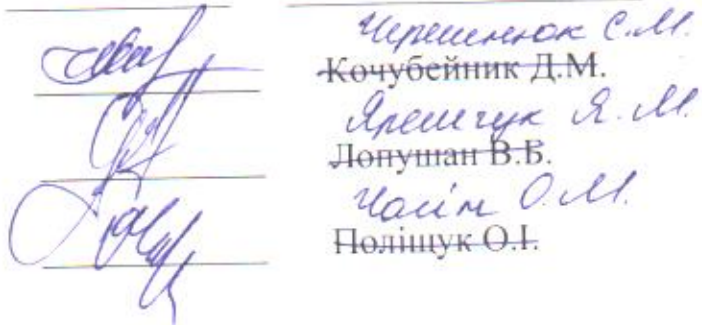 Черешнюк С.М.
Кочубейник Д.М.
Яремчук Я.М.
Лопушан В.Б.
О.М.
Поліщук О.І.